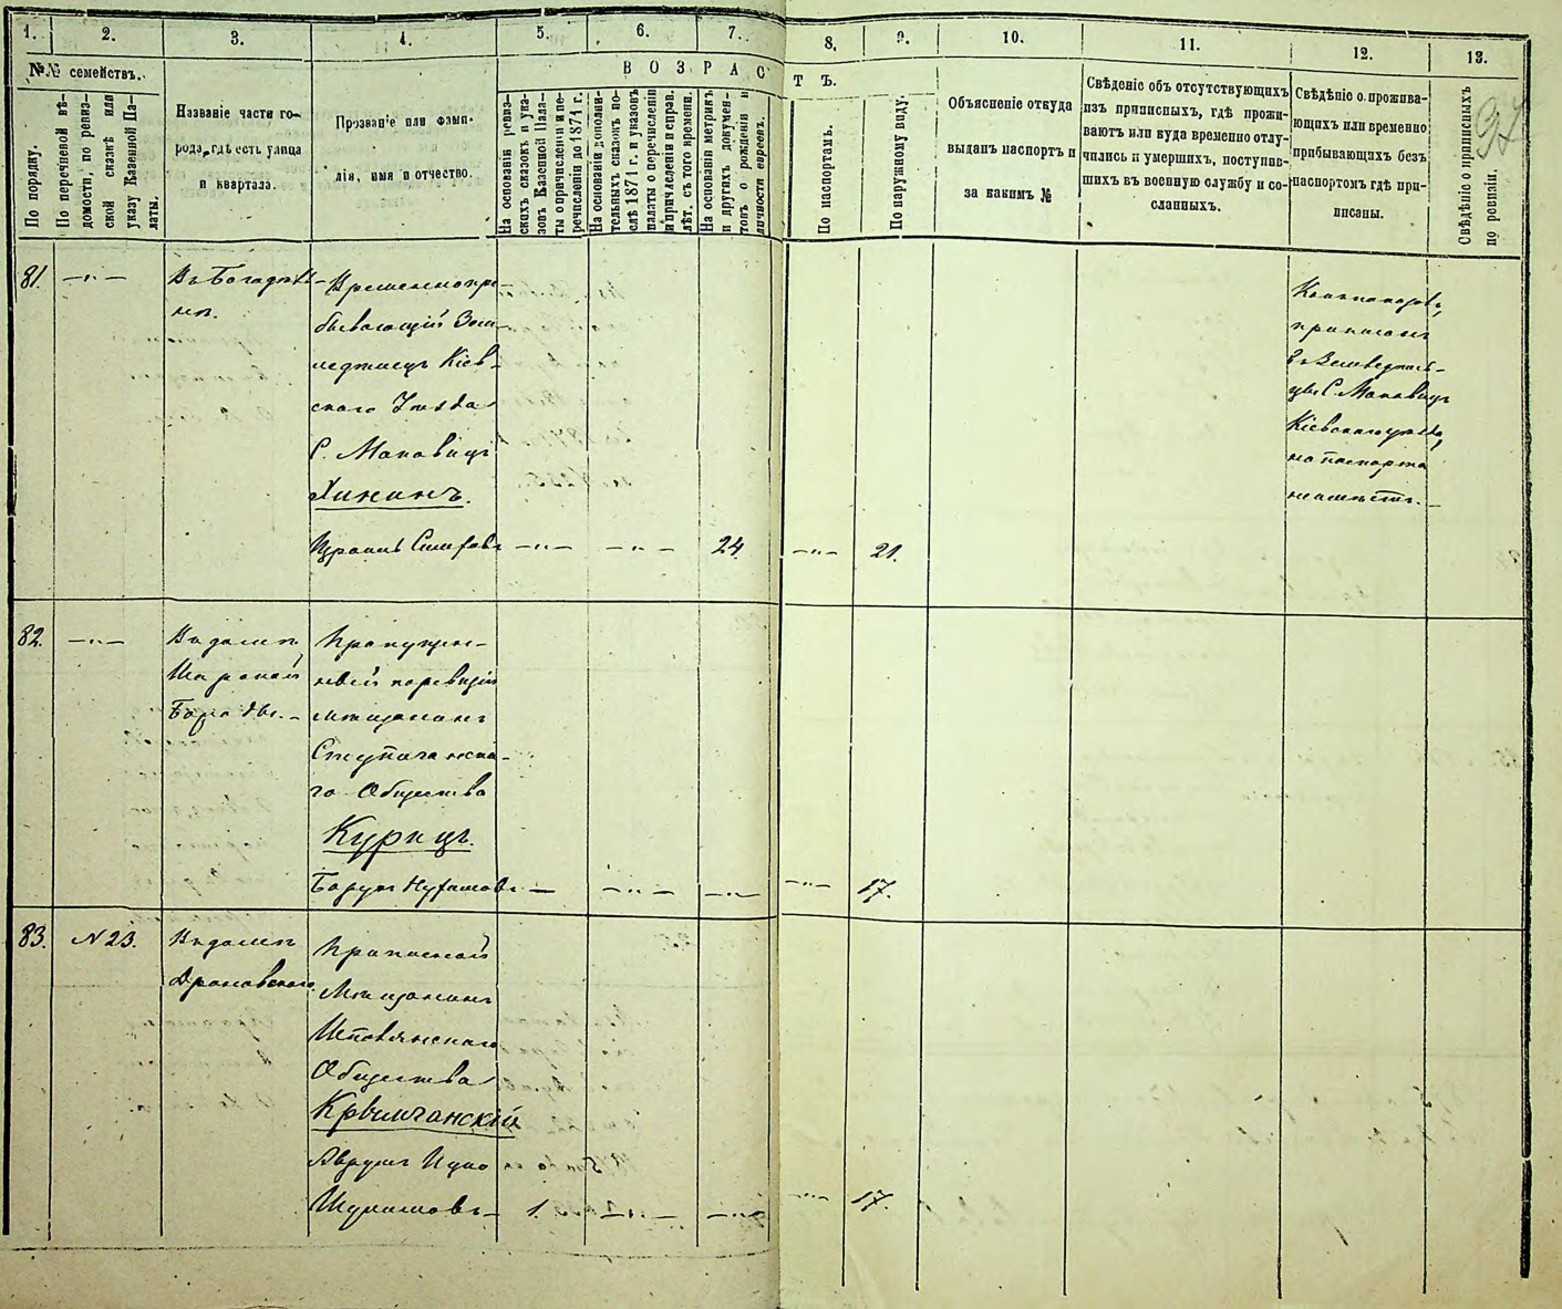 1.
2.
3.
4.
5.
6.
7.
8.
9.
10.
11.
12.
13.
№№ семействъ.
ВОЗРАС
Т Ъ.
По порядку.
По перечневой вѣ-
домости, по ревиз-
ской сказкѣ или
указу Казенной Па-
латы.
Названіе части го-
рода, гдѣ есть улица
и квартала.
Прозваніе или фами-
лія, имя и отчество.
На основаніи ревиз-
скихъ сказокъ и ука-
зовъ Казенной Пала-
ты о причисленіи и пе-
речисленіи до 1871 г.
На основаніи дополни-
тельныхъ сказокъ по-
слѣ 1871 г. и указовъ
палаты о перечисленіи
и причисленіи и справ.
лѣт. съ того времени.
На основаніи метрикъ
и другихъ докумен-
товъ о рожденіи и
личности евреевъ.
По паспортамъ.
По наружному виду.
Объясненіе откуда
выданъ паспортъ и
за какимъ №
Свѣденіе объ отсутствующихъ
изъ приписныхъ, гдѣ прожи-
ваютъ или куда временно отлу-
чились и умершихъ, поступив-
шихъ въ военную службу и со-
сланныхъ.
Свѣдѣніе о прожива-
ющихъ или временно
прибывающихъ безъ
паспортомъ гдѣ при-
писаны.
Свѣдѣніе о приписныхъ
по ревизіи.
81.
—"—
Въ Богадѣль
нѣ.
Временно пре-
бывающій Зем-
ледѣлецъ Кіев-
скаго Уѣзда
С. Маковищъ
Хикинъ.
—"—
—"—
24.
—"—
21.
приписанъ
въ Земледѣль-
цы С. Маковищъ
Кіевскаго уѣзда,
но паспорта
неимѣетъ.—
82.
—"—
Въ домѣ
Бороды.—
Пропущен-
ный по ревизіи
мѣщанинъ
го Общества
Курицъ.
Борухъ
—
—"—
—"—
—"—
17.
83.
№23.
Въ домѣ
Драновскаго
Приписной
Мѣщанинъ
Шполянскаго
Общества
Крымчанскій
Аврумъ Ицко
1.
—"—
—"—
—"—
17.